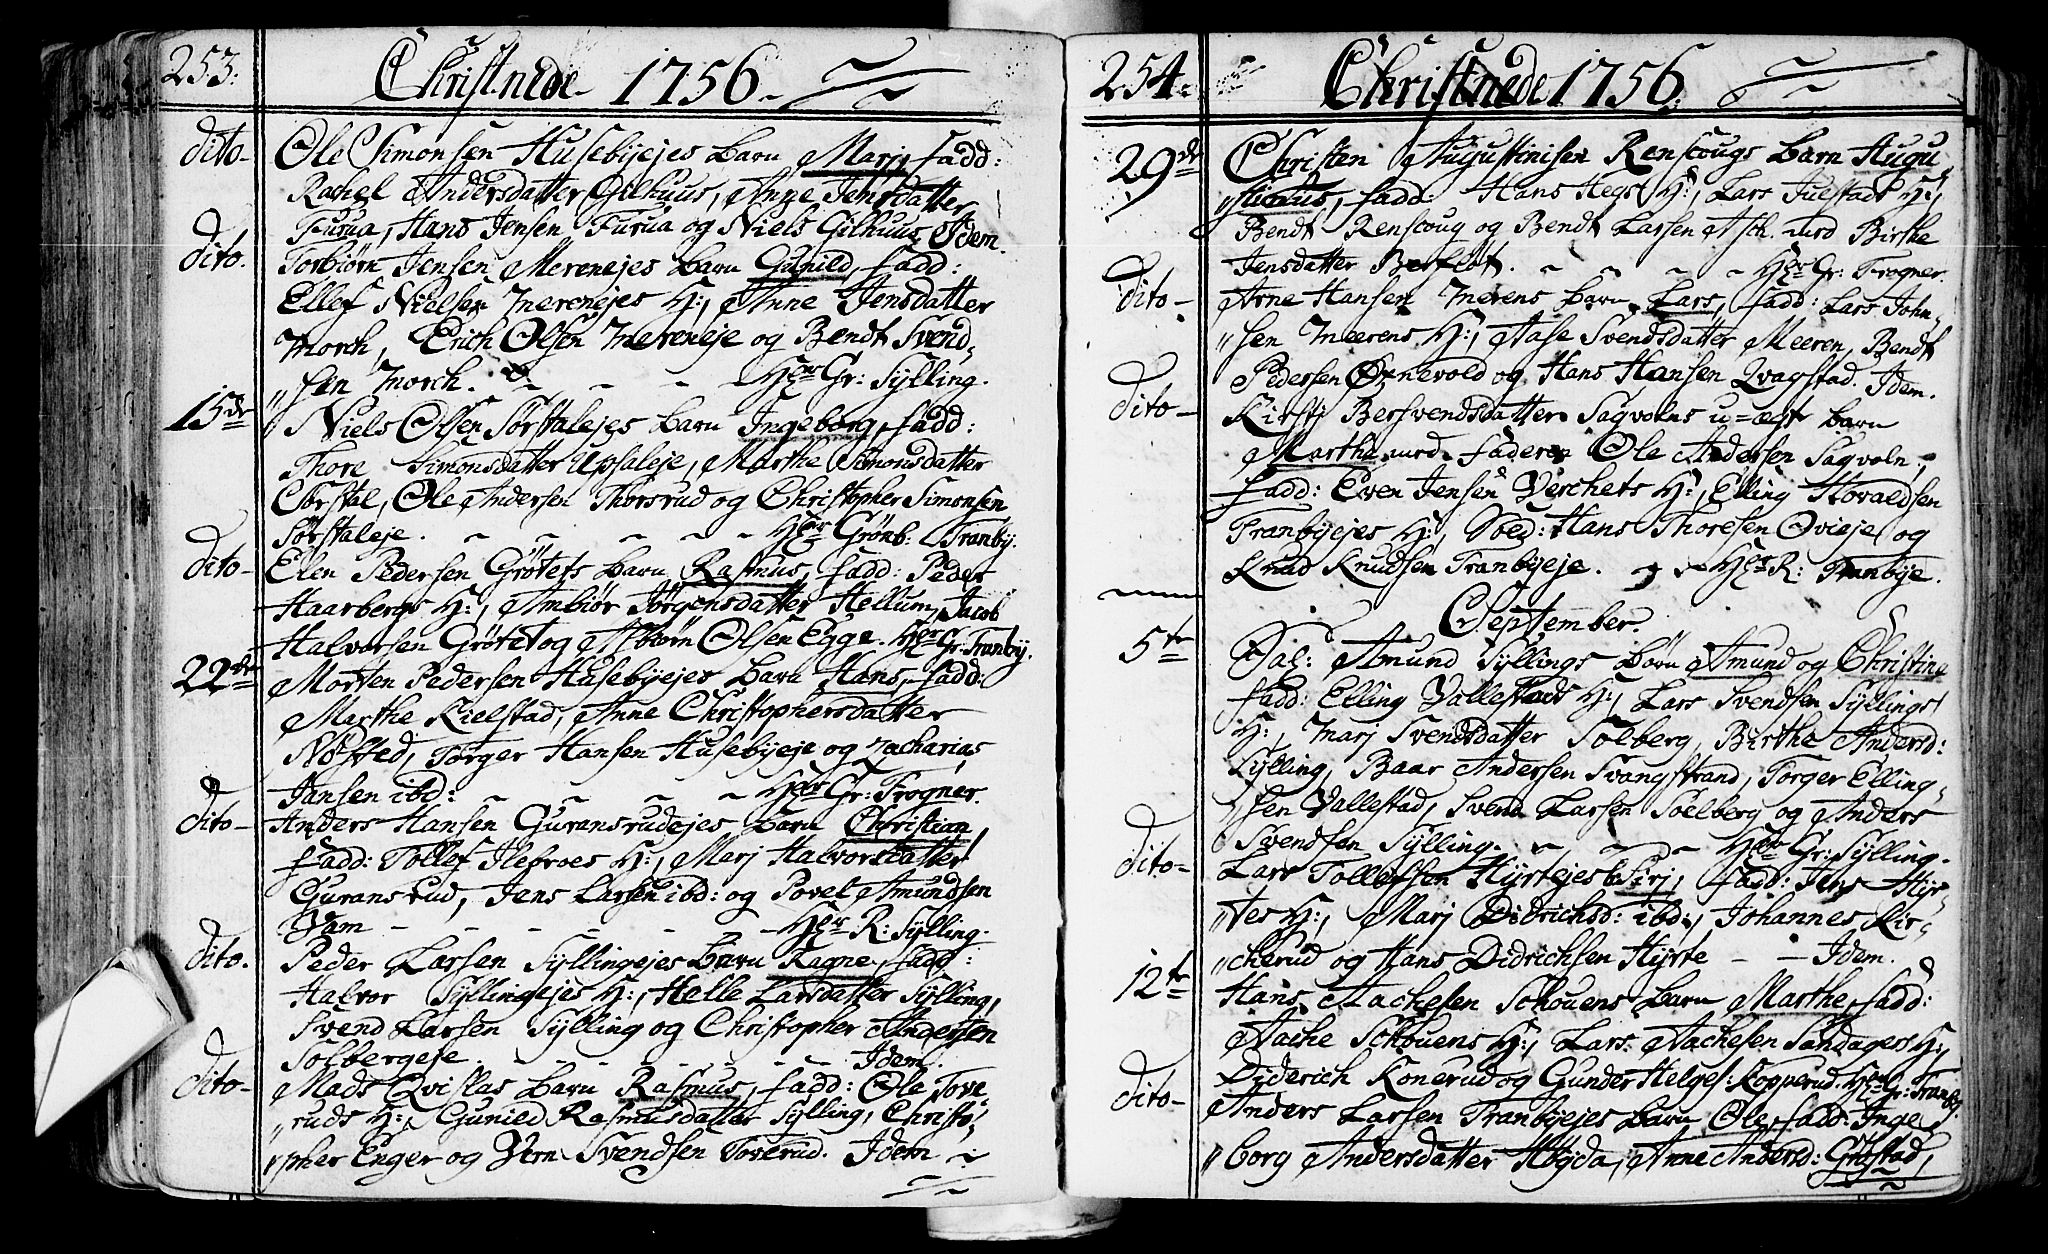 253:
Christnede 1756.
dito- Ole Simonsen Husebyejes barn Marj, fadd:
Rachel Andersdatter Gilhuus, Anne Jensdatter
Furua, Hans Jensen Furua og Niels Gilhuus, Idem.
dito. Torbiørn Jensen Merenejes barn Gunild, fadd:
Ellef Nielsen Merenejes H:, Anne Jensdatter
Morch, Erich Olsen Mereneje og Bendt Svend-
„sen Morch. - - - - Hr Gr: Sylling.
15de Niels Olsen Sørstalejes barn Ingeborg, fadd:
Thore Simonsdatter Upsaleje, Marthe Simonsdatter
Sørstal, Ole Andersen Thorsrud og Christopher Simonsen
Sørstaleje. - - - - - Hr Grønb: Tranby.
dito- Elen Pedersen Grøtets barn Rasmus, fadd: Peder
Haarbergs H:, Ambiør Jørgensdatter Hellum, Jacob
Halvorsen Grøtet og Asbiørn Olsen Egge. Hr Gr: Tranby.
22de Morten Pedersen Husebyejes barn Hans, fadd:
Marthe Kielstad, Anne Christophersdatter
Nøsted, Torger Hansen Husebyeje og Zacharias
Jansen ibd: - - - - Hr Gr: Frogner.
dito- Anders Hansen Guransrudejes barn Christian,
fadd: Tollef Ilebroes H:, Marj Halvorsdatter
Guransrud, Jens Larsen ibd: og Povel Amundsen
Vam - - - - - - Hr R: Sylling.
dito. Peder Larsen Syllingejes barn Ragne, fadd:
Halvor Syllingejes H:, Helle Larsdatter Sylling,
Svend Larsen Sylling og Christopher Andersen
Solbergeje. - - - - - Idem.
dito- Mads Qvislas barn Rasmus, fadd: Ole Tove-
„ruds H:, Gunild Rasmusdatter Sylling, Christo-
„pher Enger og Svendsen Toverud. Idem
254.
Christnede 1756.
29de Christen Augustinisen Renscougs barn Augu
„stinus, fadd: Hans Hegs H:, Lars Juelstads H:,
Bendt Renscoug og Bendt Larsen Asch. med Birthe
Jensdatter Berflot. - - - Hr Gr: Frogner.
dito- Arne Hansen Merens barn Lars, fadd: Lars John-
„sen Meerens H:, Aase Svendsdatter Meeren, Bendt
Pedersen Ørnevold og Hans Hansen Qvagstad. Idem.
dito- Kirsti Bersvendsdatter Sagvolns u-ægte barn
Marthe med faderen Ole Andersen Sagvoln,
fadd: Even Jensen Verchets H:, Elling Hovaldsen
Tranbyejes H:, Sold: Hans Thoresen Ovieje og
Knud Knudsen Tranbyeje. - - Hr R: Tranbye.
September.
5te Sal: Amund Syllings børn Amund og Christine
fadd: Elling Vallestads H:, Lars Svendsen Syllings
H:, Marj Svendsdatter Solberg, Birthe Andersd:
Sylling, Baar Andersen Svangstrand, Torger Elling-
„sen Vallestad, Svend Larsen Solberg og Anders
Svendsen Sylling. - - - Hr Gr: Sylling.
dito- Lars Tollefsen Hyrtejes b. Sirj, fadd: Jens Hyr-
„tes H:, Marj Didrichsd: ibd:, Johannes Kir-
„cherud og Hans Didrichsen Hyrte - - Idem.
12te Hans Aachesen Schouens barn Marthe, fadd:
Aache Schouens H:, Lars Aachesen Sandagers H:,
Diderich Konerud og Gunder Helges: Kopperud. Hr Gr: Tranby.
dito- Anders Larsen Tranbyejes barn Ole, fadd: Inge
„borg Andersdatter Høgda, Anne Andersd: Grøstad,